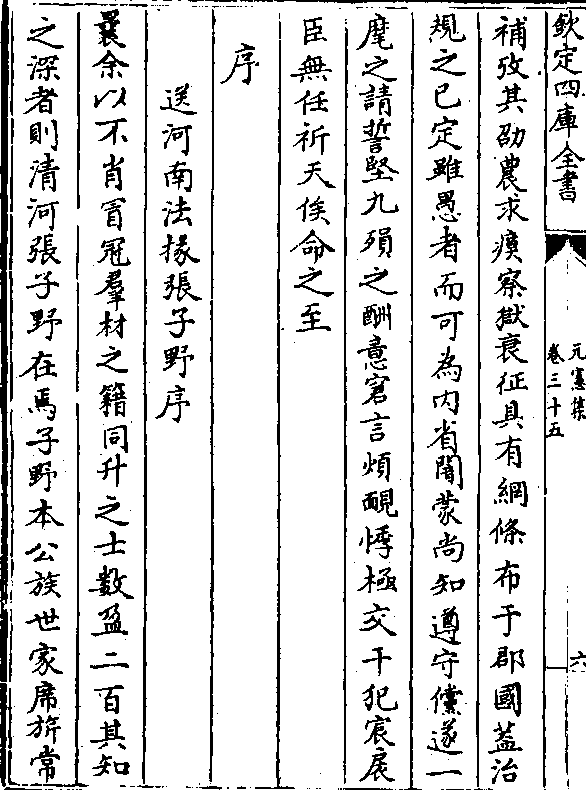 欽定四庫全書
元憲集
卷三十五
六
補攷其劭農求瘼察獄哀征具有綱條布于郡國蓋治
規之已定雖愚者而可為内省闇蒙尚知遵守儻遂一
麾之請誓堅九殞之酬意窘言煩靦悸極交干犯宸扆
臣無任祈天俟命之至
序
送河南法掾張子野序
曩余以不肖冐冠羣材之籍同升之士數盈二百其知
之深者則清河張子野在焉子野本公族世家席旂常